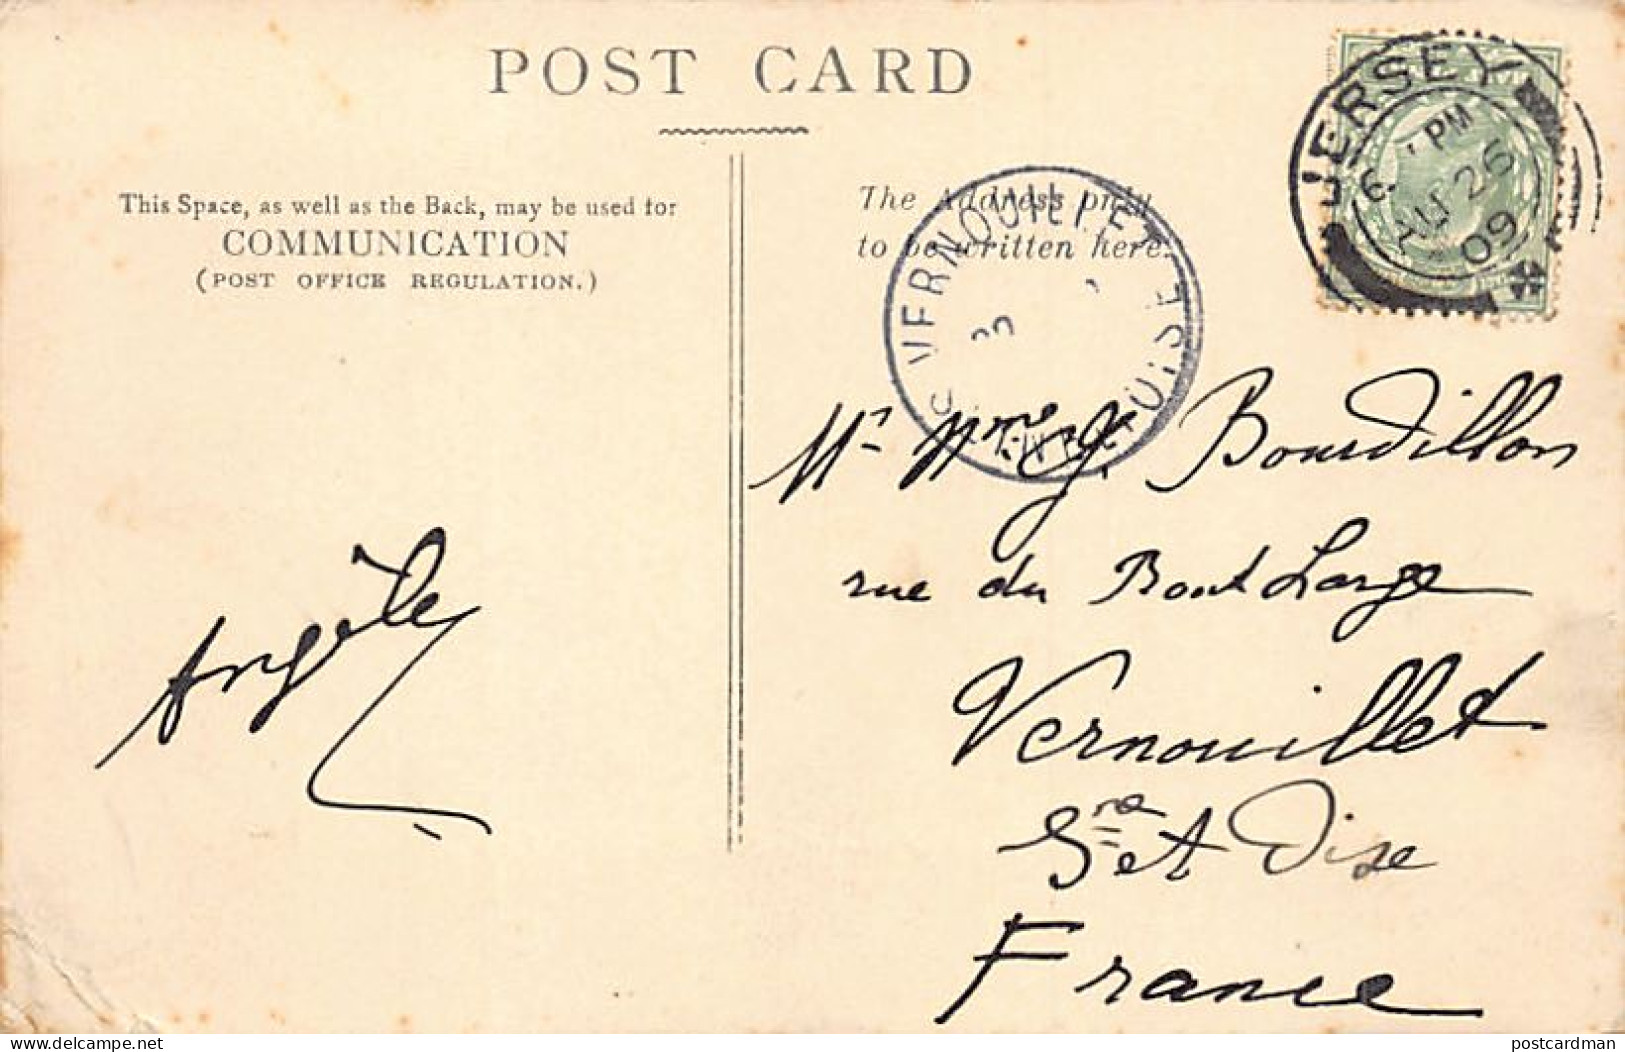 POST CARD
This Space, as well as the Back, may be used for
COMMUNICATION
(POST OFFICE REGULATION.)
The Address only
to be written here.
JERSEY
6 PM
AU 26
09
VERNOUILLET
SEINE-ET-OISE
Mr Mme J. Bourdillon
rue du Bout Large
Vernouillet
Sne et Oise
France
Angèle
delcampe.net
postcardman